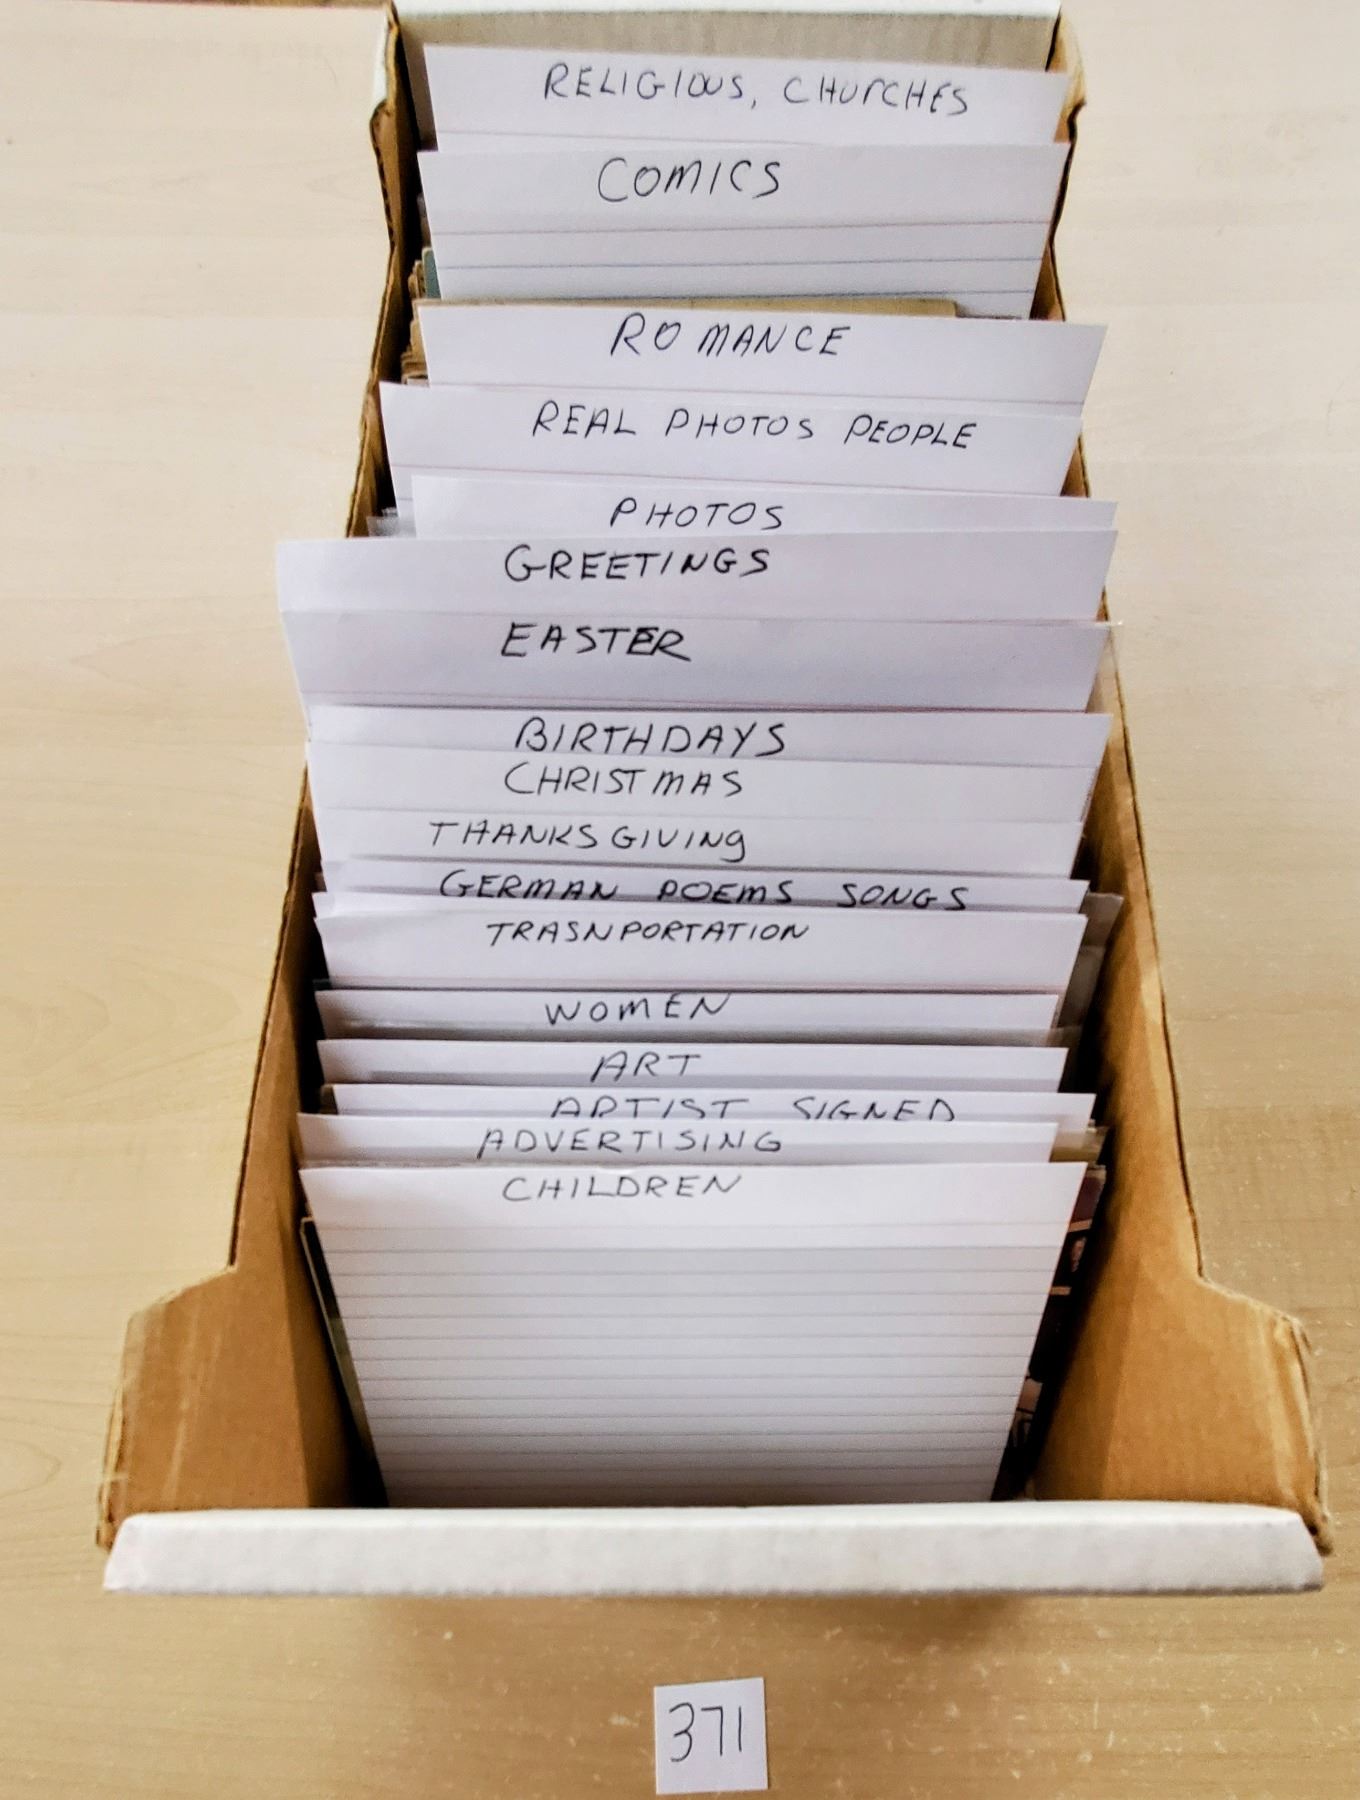 RELIGIOUS, CHURCHES
COMICS
ROMANCE
REAL PHOTOS PEOPLE
PHOTOS
GREETINGS
EASTER
BIRTHDAYS
CHRISTMAS
THANKSGIVING
GERMAN POEMS SONGS
TRASNPORTATION
WOMEN
ART
ARTIST SIGNED
ADVERTISING
CHILDREN
371